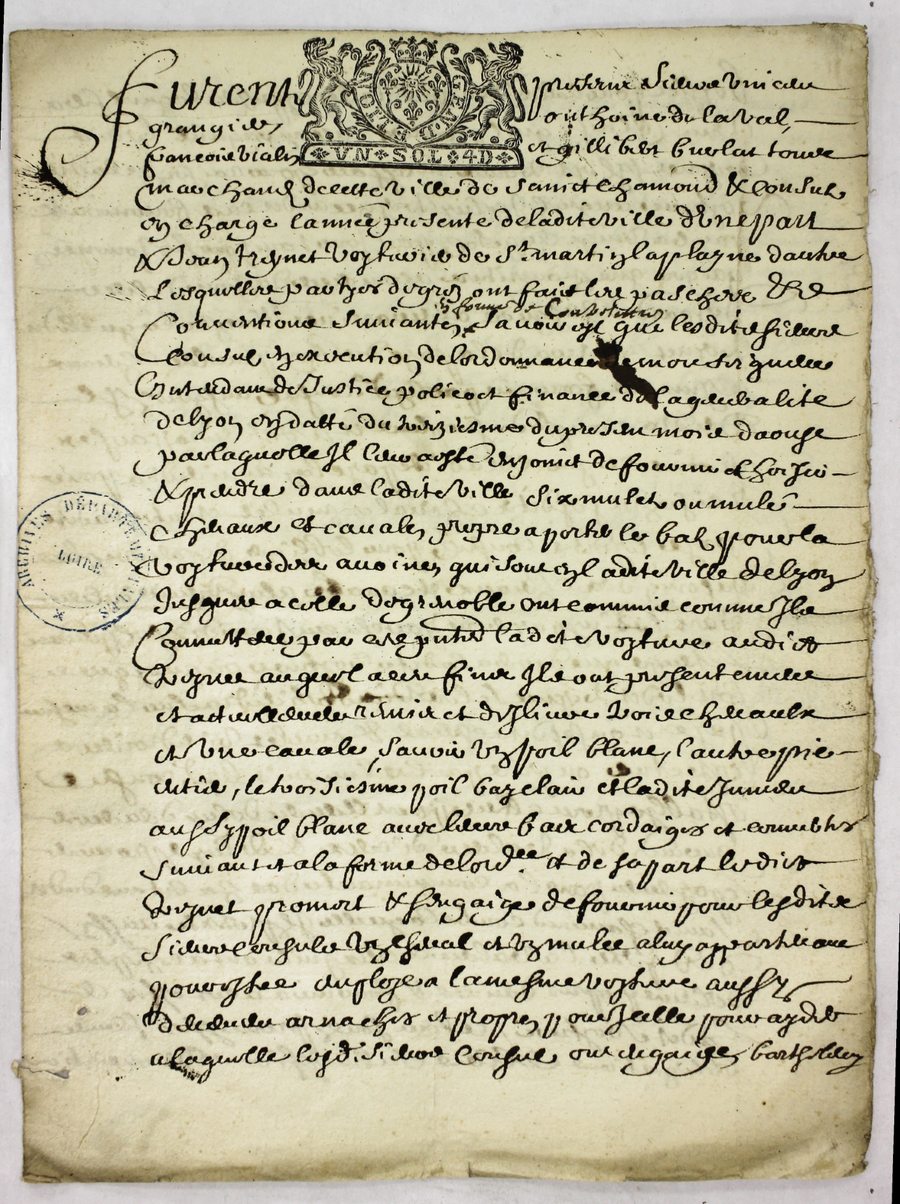 Furent presens Sieurs Vincen
grangier, anthoine du laval,
francois vialis et gillibert burlat tous
marchand de cette ville de sainct chamond & consul
en charge l'année présente de ladite ville d'une part
& Jean Reynet voyturie de St martin la playne d'autre
Lesquelles partyes de gré ont fait les pasches &
en forme de
Conventions suivantes, savoir est que lesdits sieurs
Consul en execution de l'ordonnance de monseigneur
Intendant de Justice police et finance de la generalité
de lyon en datte du du present mois d'aoust
par laquelle Il leur a esté enjoinct de fournir choisir
& prendre dans ladite ville six mulet ou mules
chevaux et cavales propre a porter le bat pour la
voyture des avoines qui sont en ladite ville de lyon
Jusques a celle de grenoble ont commis comme Ils
Commettent par ces pntes ladite voyture audict
Reynet auquel a ces fins Ils ont presentement
et actuellement remis et deslivre trois chevaulx
et une cavale, savoir un poil blanc, l'autre
le troisiesme poil bay clair et ladite Jument
aussy poil blanc avec leurs bats cordaiges et couvertes
suivant et a la forme de lordce et de sa part ledict
Reynet promet & s'engaige de fournir pour lesdits
sieurs Consuls un cheval et un mulet a luy appartenant
pour estre employe a la mesme voyture aussy
arnaches et propres pour Icelle pour ayder
a laquelle lesd sieurs Consul ont engaiges barthelemy
VN · SOL · 4D
ARCHIVES DÉPARTEMENTALES
LOIRE